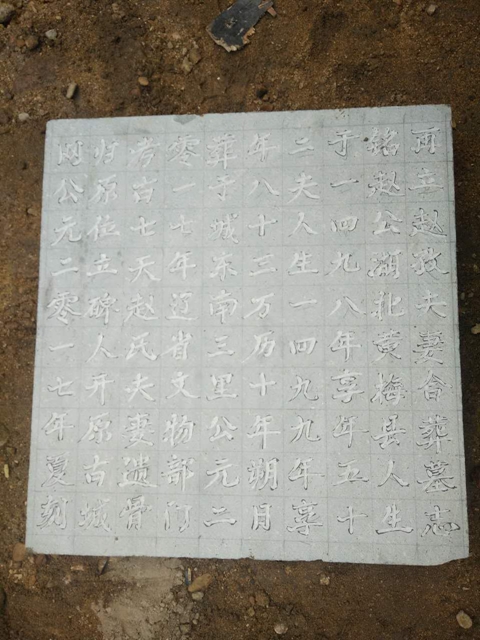 再立赵孜夫妻合葬墓志
铭赵公湖北黄梅县人生
于一四九八年享年五十
二夫人生一四九九年享
年八十三万历十年朔月
葬于城东南三里公元二
零一七年辽省文物部门
考古七天赵氏夫妻遗骨
归原位立碑人开原古城
公元二零一七年夏刻